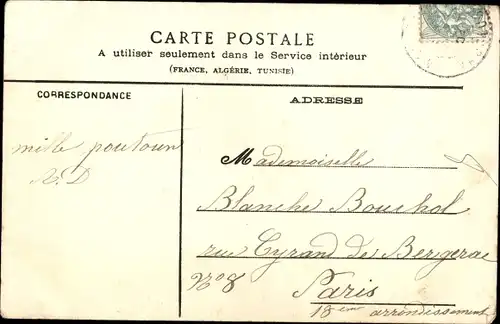 CARTE POSTALE
A utiliser seulement dans le Service intérieur
(FRANCE, ALGÉRIE, TUNISIE)
CORRESPONDANCE
ADRESSE
mille poutoun
N.D
Mademoiselle
Blanche Bouchol
rue Cyrano de Bergerac
No 8
Paris
18ème arrondissement